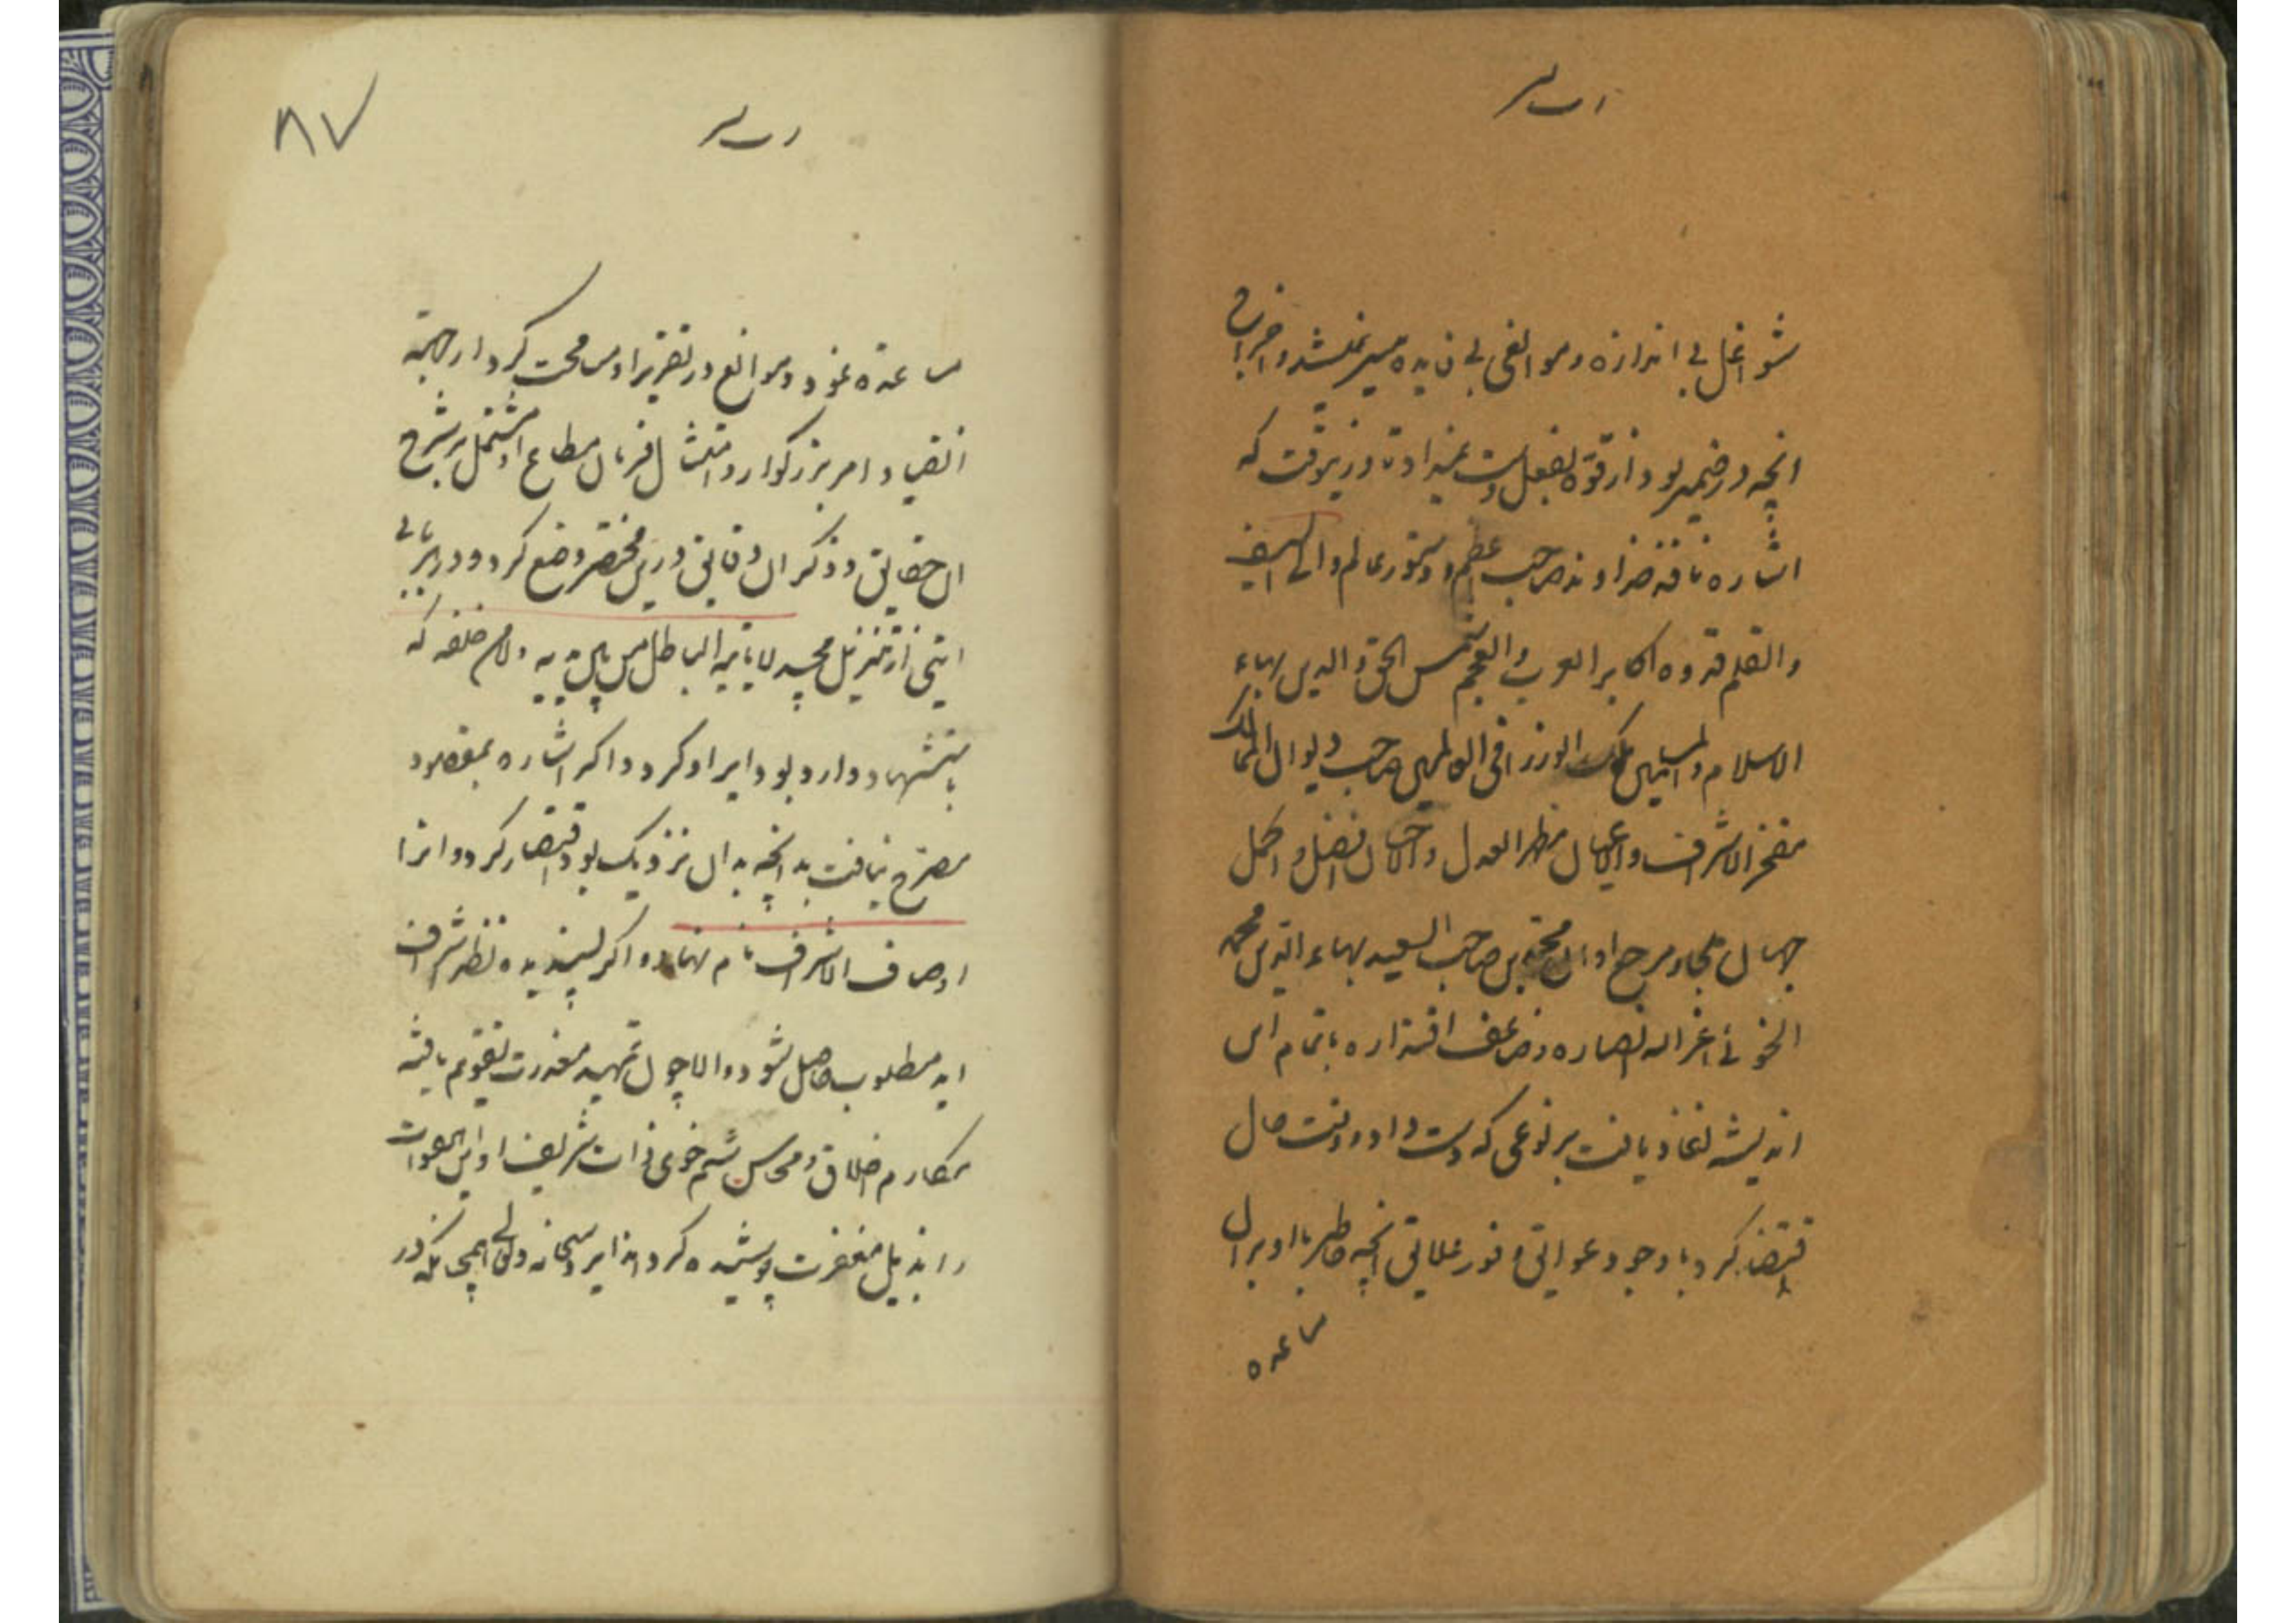 شواغل بی اندازه و موانعی بی فایده میسر نمیشد و اخراج
انچه در ضمیر بود از قوة بفعل دست نمیداد تا درین وقت که
اشاره نافذ خداوند صاحب اعظم و دستور عالم والی السیف
والقلم قدوه اکابر العرب والعجم شمس الحق والدین بهاء
الاسلام والمسلمین ملک الوزرا فی العالمین صاحب دیوان الممالک
مفخر الاشراف والاعیان مظهر العدل والاحسان افضل و اکمل
جهان ملجا و مرجع ایران محمد بن صاحب السعید بهاء الدین محمد
الجوینی اعز الله انصاره و ضاعف اقتداره باتمام این
اندیشه نفاذ یافت بر نوعی که دست داد و وقت و حال
اقتضا کرد با وجود عوایق و وفور علایق انچه خاطر با او بران
ساعده
ساعدة نمود و موانع در تقریر او مسامحت کرد از جهة
انقیاد امر بزرگوار و امتثال فرمان مطاع او مشتمل بر شرح
ان حقایق و ذکر ان دقایق درین مختصر وضع کرد و در هر بابی
ایتی از تنزیل مجید لا یاتیه الباطل من بین یدیه ولا من خلفه که
باستشهاد وارد بود ایراد کرد و اکر اشاره بمقصود
مصرح نیافت بدانچه بدان نزدیک بود اقتصار کرد و انرا
اوصاف الاشراف نام نهاد و اکر پسندیده نظر اشرف
اید مطلوب حاصل شود و الا چون تمهید معذرت تقدیم یافته
مکارم اخلاق و محاسن شیم خوی ذات شریف او این هفوات
را بذیل مغفرت پوشیده کرداند ایزد سبحانه و تعالی همچنانکه در
۸۷